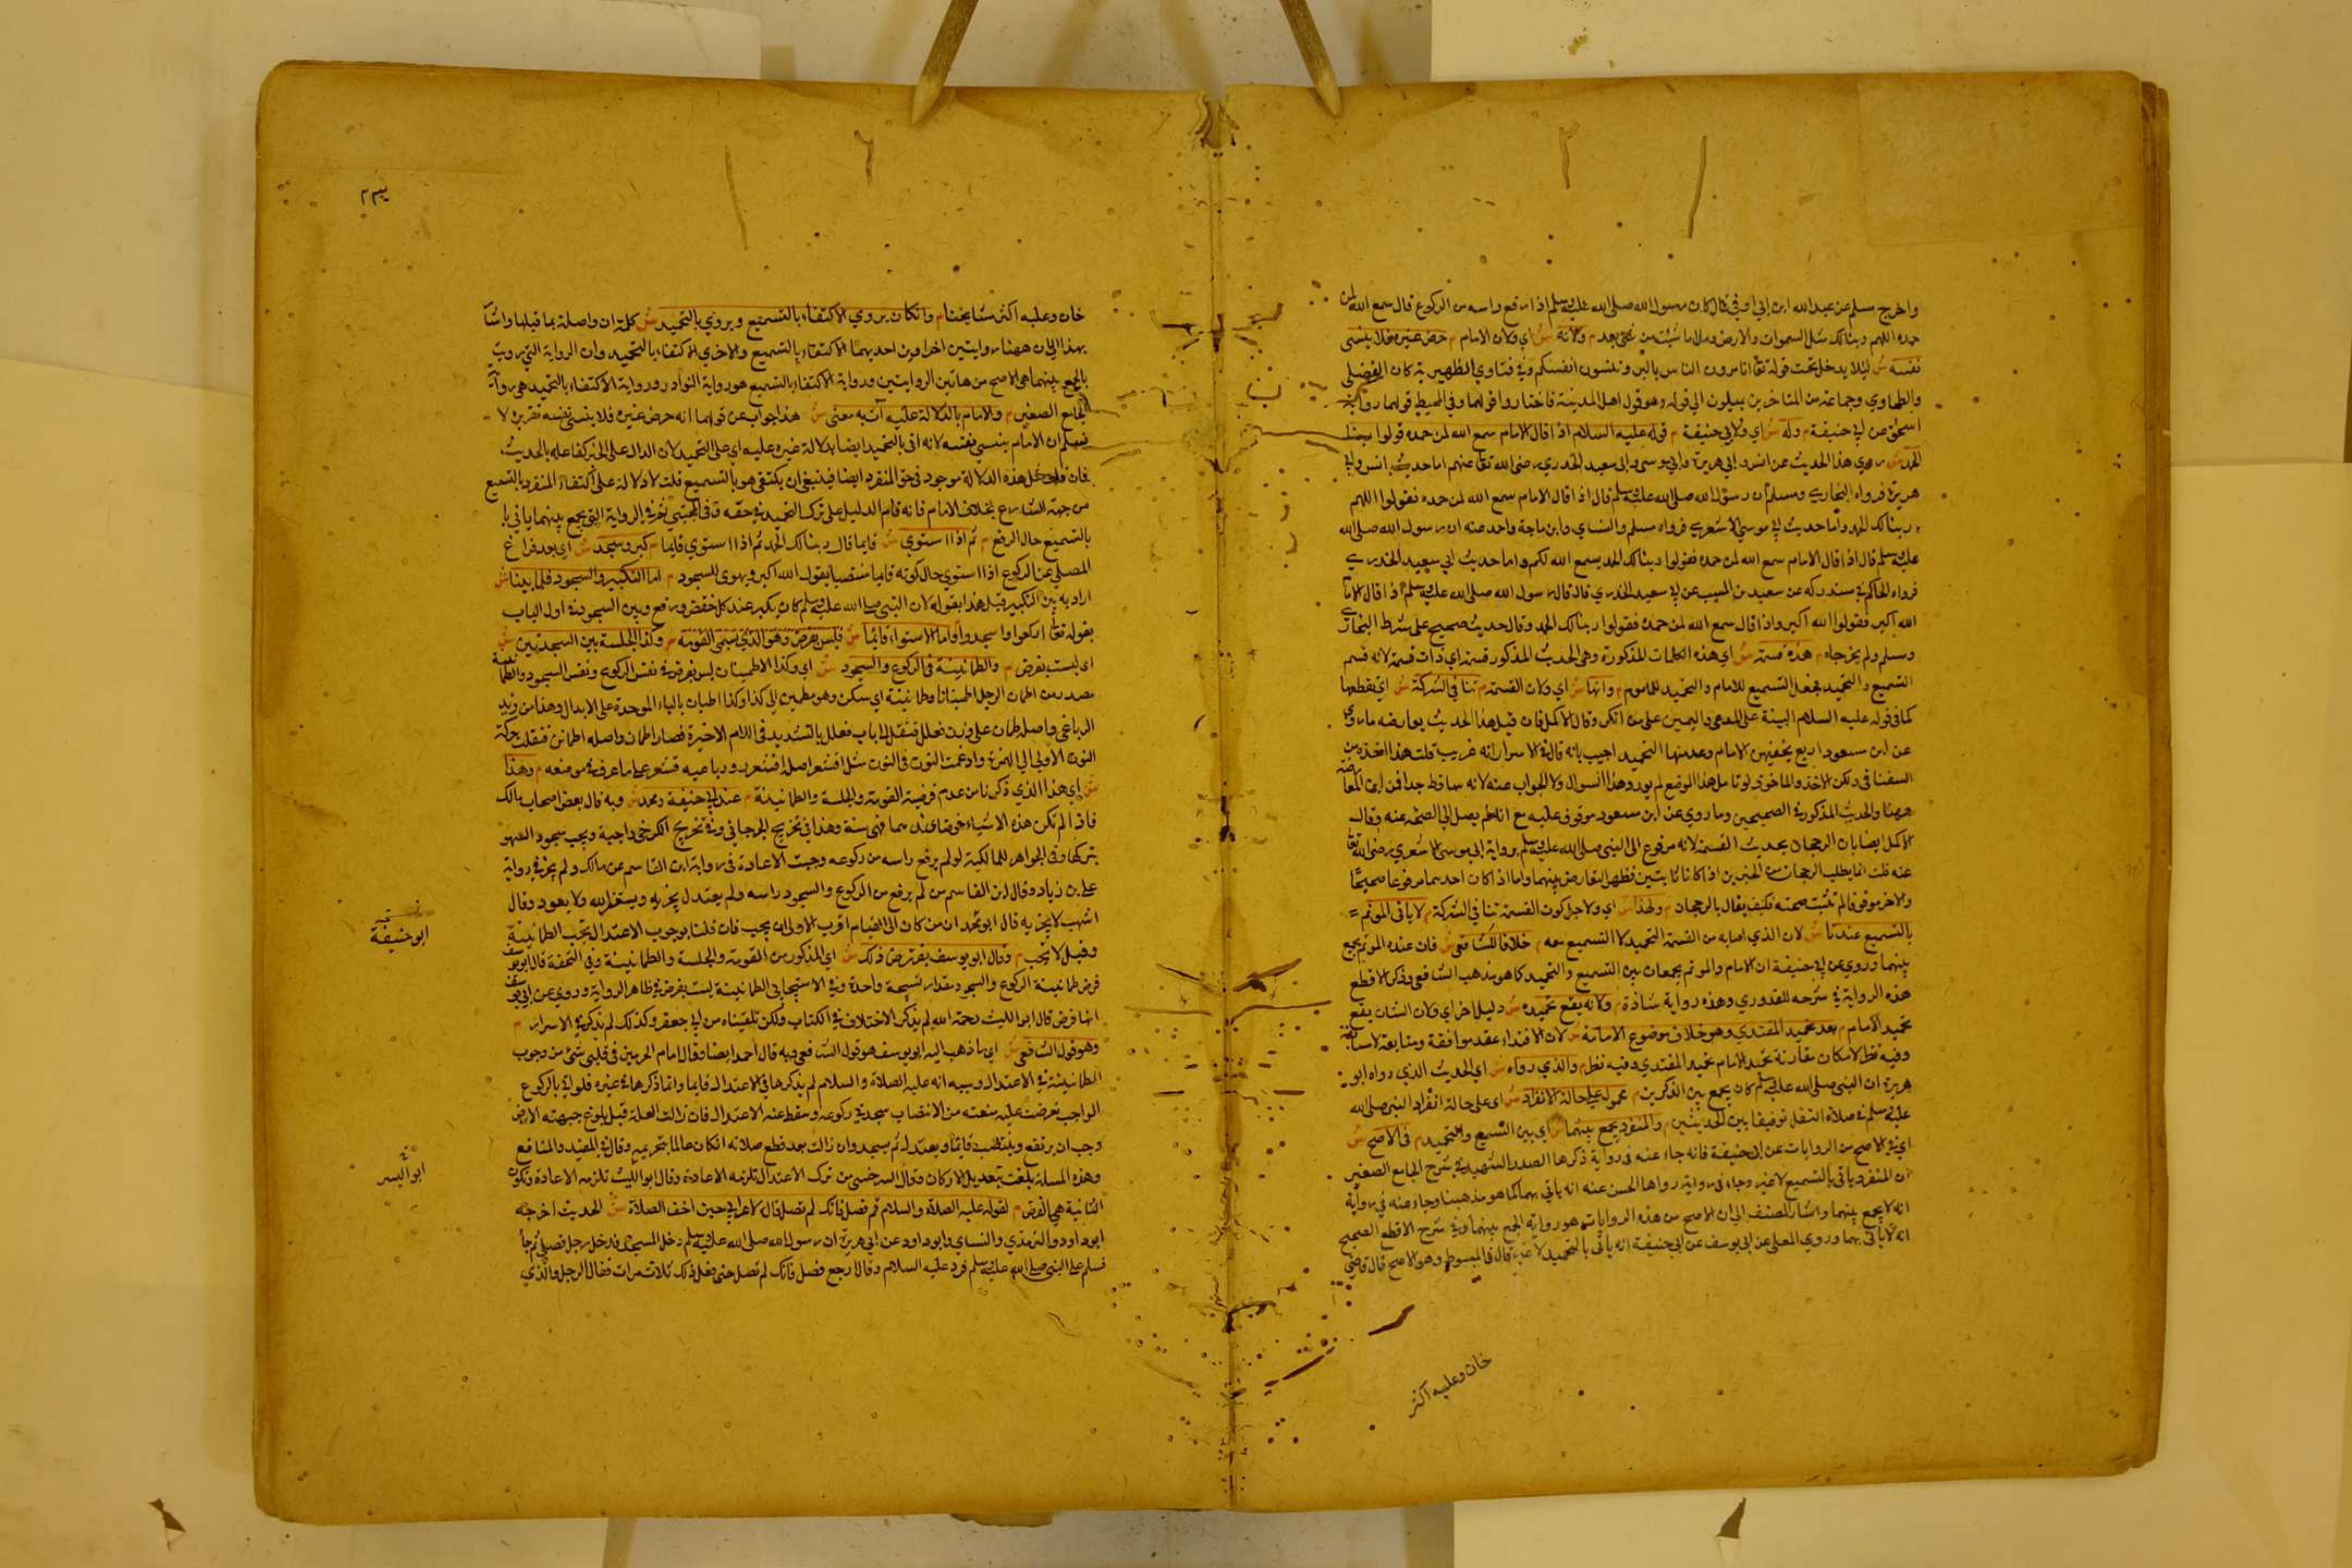 واخرج مسلم عن عبدالله ابن ابي اوفى قال كان رسول الله صلى الله عليه وسلم اذا رفع راسه من الركوع قال سمع الله لمن
حمده اللهم ربنا لك مل السموات والارض وملا ما شئت من شئ بعد م ولانه ش اي ولان الامام م حرض غيره فلا ينسى
نفسه ش ليلا يدخل تحت قوله تعا اتامرون الناس بالبر وتنسون انفسكم وفي فتاوي الظهيرية كان الفضلى
والطحاوي وجماعة من المتاخرين يميلون الى قوله وهو قول اهل المدينة فاختاروا قولهما وفي المحيط قولهما رواية
اسحاق عن ابي حنيفة م وله ش اي ولابي حنيفة م قوله عليه السلام اذا قال الامام سمع الله لمن حمده قولوا ربنا لك
الحمد ش روي هذا الحديث عن انس وابي هريرة وابي موسى وابي سعيد الخدري رضى الله تعا عنهم اما حديث انس وابي
هريرة فرواه البخاري ومسلم ان رسول الله صلى الله عليه وسلم قال اذا قال الامام سمع الله لمن حمده فقولوا اللهم
ربنا لك الحمد واما حديث ابي موسى الاشعري فرواه مسلم والنساي وابن ماجة واحد منه ان رسول الله صلى الله
عليه وسلم قال اذا قال الامام سمع الله لمن حمده فقولوا ربنا لك الحمد يسمع الله لكم واما حديث ابي سعيد الخدري
فرواه الحاكم في مستدركه عن سعيد بن المسيب عن ابي سعيد الخدري قال قال رسول الله صلى الله عليه وسلم اذا قال الامام
الله اكبر فقولوا الله اكبر واذا قال سمع الله لمن حمده فقولوا ربنا لك الحمد وقال حديث صحيح على شرط البخاري
ومسلم ولم يخرجاه م هذه قسمة ش اي هذه الكلمات المذكورة وهي الحديث المذكور قسمة اي ذات قسمة لانه قسم
التسميع والتحميد فجعل التسميع للامام والتحميد للماموم م وانها ش اي ولان القسمة م تنافى الشركة ش اي يقطعها
كما فى قوله عليه السلام البينة على المدعى واليمين على من انكر وقال الاكمل فان قيل هذا الحديث يعارضه ما روي
عن ابن مسعود اربع يخفيهن الامام وعد منها التحميد اجيب بانه قال في الاسرار انه غريب قلت هذا اخذه من
السغناقى ولكن الاخذ والماخوذ لو تامل هذا الموضع لم يورد هذا السوال ولا الجواب عنه لانه ساقط جدا فمن اين المعارضة
ههنا والحديث المذكور في الصحيحين وما روي عن ابن مسعود موقوف عليه مع انه لم يصل الى الصحة عنه وقال
الاكمل ايضا بان الرجحان بحديث القسمة لانه مرفوع الى النبى صلى الله عليه وسلم برواية ابي موسى الاشعري رضى الله تعا
عنه قلت انما يطلب الرجحان من الخبرين اذا كانا ثابتين فظهر التعارض بينهما واما اذا كان احدهما مرفوعا صحيحا
والاخر موقوفا لم تثبت صحته فكيف يقال بالرجحان م ولهذا ش اي ولاجل كون القسمة تنافي الشركة م لا ياتى الموتم
بالتسميع عندنا ش لان الذي اصابه من القسمة التحميد لا التسميع معه م خلافا للشافعي ش فان عنده الموتم يجمع
بينهما وروي عن ابي حنيفة ان الامام والموتم يجمعان بين التسميع والتحميد كما هو مذهب الشافعى وذكر الاقطع
هذه الرواية في شرحه للقدوري وهذه رواية شاذة م ولانه يقع تحميده ش دليل اخر اي ولان الشان يقع
تحميد الامام م بعد تحميد المقتدي وهو خلاف موضوع الامامة ش لان الاقتداء عقد موافقة ومتابعة لا مسابقة
وفيه نظر لامكان مقارنة تحميد الامام تحميد المقتدي وفيه نظر م والذي رواه ش اي الحديث الذي رواه ابو
هريرة ان النبى صلى الله عليه وسلم كان يجمع بين الذكرين م محمول على حالة الانفراد ش اي على حالة انفراد النبى صلى الله
عليه وسلم في صلاة النفل توفيقا بين الحديثين م والمنفرد يجمع بينهما ش اي بين التسميع والتحميد م فى الاصح ش
اي في الاصح من الروايات عن ابي حنيفة فانه جاء عنه فى رواية ذكرها الصدر الشهيد في شرح الجامع الصغير
ان المنفرد ياتى بالتسميع لا غير وجاء فى رواية رواها الحسن عنه انه ياتى بهما كما هو مذهبنا وجاء عنه في رواية
انه لا يجمع بينهما واشار المصنف الى ان الاصح من هذه الروايات هو رواية الجمع بينهما وفي شرح الاقطع الصحيح
انه لا ياتى بهما وروي المعلى عن ابي يوسف عن ابي حنيفة انه ياتى بالتحميد لا غير قال فى المبسوط وهو الاصح قال قاضي
خان وعليه اكثر
٢٣٣
خان وعليه اكثر مشايخنا م وان كان يروي الاكتفاء بالتسميع ويروي بالتحميد ش كلمة ان واصلة بما قبلها واشار
بهذا الى ان ههنا روايتين اخراوين احديهما الاكتفاء بالتسميع والاخرى الاكتفاء بالتحميد وان الرواية التى رويت
بالجمع بينهما هى الاصح من هاتين الروايتين ورواية الاكتفاء بالتسميع هو رواية النوادر ورواية الاكتفاء بالتحميد هى رواية
الجامع الصغير م والامام بالدلالة عليه آت به معنى ش هذا جواب عن قولهما انه حرض غيره فلا ينسى نفسه تقريره لا
نسلم ان الامام ينسى نفسه لانه اتى بالتحميد ايضا بدلالة غيره عليه اي على التحميد لان الدال على الخير كفاعله بالحديث
فان قلت هل هذه الدلالة موجود فى حق المنفرد ايضا فينبغى ان يكتفى هو بالتسميع قلت لا دلالة على اكتفاء المنفرد بالتسميع
من جهة الشارع بخلاف الامام فانه قام الدليل على ترك التحميد في حقه وفى المجتبى ثم في الرواية التى يجمع بينهما ياتى
بالتسميع حال الرفع م ثم اذا استوي ش قايما قال ربنا لك الحمد ثم اذا استوي قايما م كبر وسجد ش اي بعد فراغ
المصلى عن الركوع اذا استوي حال كونه قايما منتصبا يقول الله اكبر ويهوى للسجود م اما التكبير والسجود فلما بينا ش
اراد به بين التكبير قبل هذا بقوله لان النبى صلى الله عليه وسلم كان يكبر عند كل خفض ورفع وبين السجود في اول الباب
بقوله تعا اركعوا واسجدوا واما الاستواء قايما ش فليس بفرض وهو الذي يسمى القومة م وكذا الجلسة بين السجدتين ش
اي ليست بفرض م والطمانينة فى الركوع والسجود ش اي وكذا الاطمينان ليس بفرض في نفس الركوع ونفس السجود والطمانينة
مصدر من اطمان الرجل اطمينانا وطمانينة اي سكن وهو مطمين الى كذا وكذا اطبان بالباء الموحدة على الابدال وهذا من مزيد
الرباعى واصله طمان على وزن فعلل فنقل الى باب فعلل بالتشديد فى اللام الاخيرة فصار اطمان واصله اطمانن فنقلت حركة
النون الاولى الى الهمزة وادغمت النون فى النون مثل اقشعر اصله اقشعرر ورباعيه قشعر على ما عرف في موضعه م وهذا
ش اي هذا الذي ذكرنا من عدم فرضية القومة والجلسة والطمانينة م عند ابي حنيفة ومحمد ش وبه قال بعض اصحاب مالك
فاذا لم تكن هذه الاشياء فرضا عندهما فهى سنة وهذا في تخريج الجرجاني وفي تخريج الكرخى واجبة ويجب سجود السهو
بتركها وفى الجواهر للمالكية لو لم يرفع راسه من ركوعه وجبت الاعادة فى رواية ابن القاسم عن مالك ولم يجز في رواية
على بن زياد وقال ابن القاسم من لم يرفع من الركوع والسجود راسه ولم يعتدل يجزيه ويستغفر الله ولا يعود وقال
اشهب لا يجزيه قال ابو محمد ان من كان الى القيام اقرب الاولى ان يجب فان قلنا بوجوب الاعتدال تجب الطمانينة
وقيل لا تجب م وقال ابو يوسف يفترض ذلك ش اي المذكور من القومة والجلسة والطمانينة وفى التحفة قال ابو يوسف
فرض طمانينة الركوع والسجود مقدار تسبيحة واحدة وفي الاستيجابى الطمانينة ليست بفرض في ظاهر الرواية وروي عن ابي يوسف
انها فرض قال ابو الليث رحمه الله لم يذكر الاختلاف في الكتاب ولكن تلقيناه من ابي جعفر وكذلك لم يذكر في الاسرار م
وهو قول الشافعي ش اي ما ذهب اليه ابو يوسف هو قول الشافعى وبه قال احمد ايضا وقال امام الحرمين فى قلبى شئ من وجوب
الطمانينة في الاعتدال وسببه انه عليه الصلاة والسلام لم يذكرها فى الاعتدال قايما وانما ذكرها في غيره فلو اتى بالركوع
الواجب فعرضت عليه منعته من الانتصاب سجد في ركوعه وسقط عنه الاعتدال فان زالت العلة قبل بلوغ جبهته الارض
وجب ان يرتفع وينتصب قايما ويعتدل ثم يسجد وان زالت بعد قطع صلاته ان كان عالما بتحريمه وقال في المفيد والمنافع
وهذه المسلة بلغت بتعديل الاركان وقال السرخسى من ترك الاعتدال تلزمه الاعادة وقال ابو الليث تلزمه الاعادة وتكون
الثانية هى الفرض م لقوله عليه الصلاة والسلام قم فصل فانك لم تصل قال لاعرابي حين اخف الصلاة ش الحديث اخرجه
ابو داود والترمذي والنساي وابو داود عن ابي هريرة ان رسول الله صلى الله عليه وسلم دخل المسجد فدخل رجل فصلى ثم جاء
فسلم على النبى صلى الله عليه وسلم فرد عليه السلام وقال ارجع فصل فانك لم تصل حتى فعل ذلك ثلاث مرات فقال الرجل والذي
ابو حنيفة
ابو اليسر